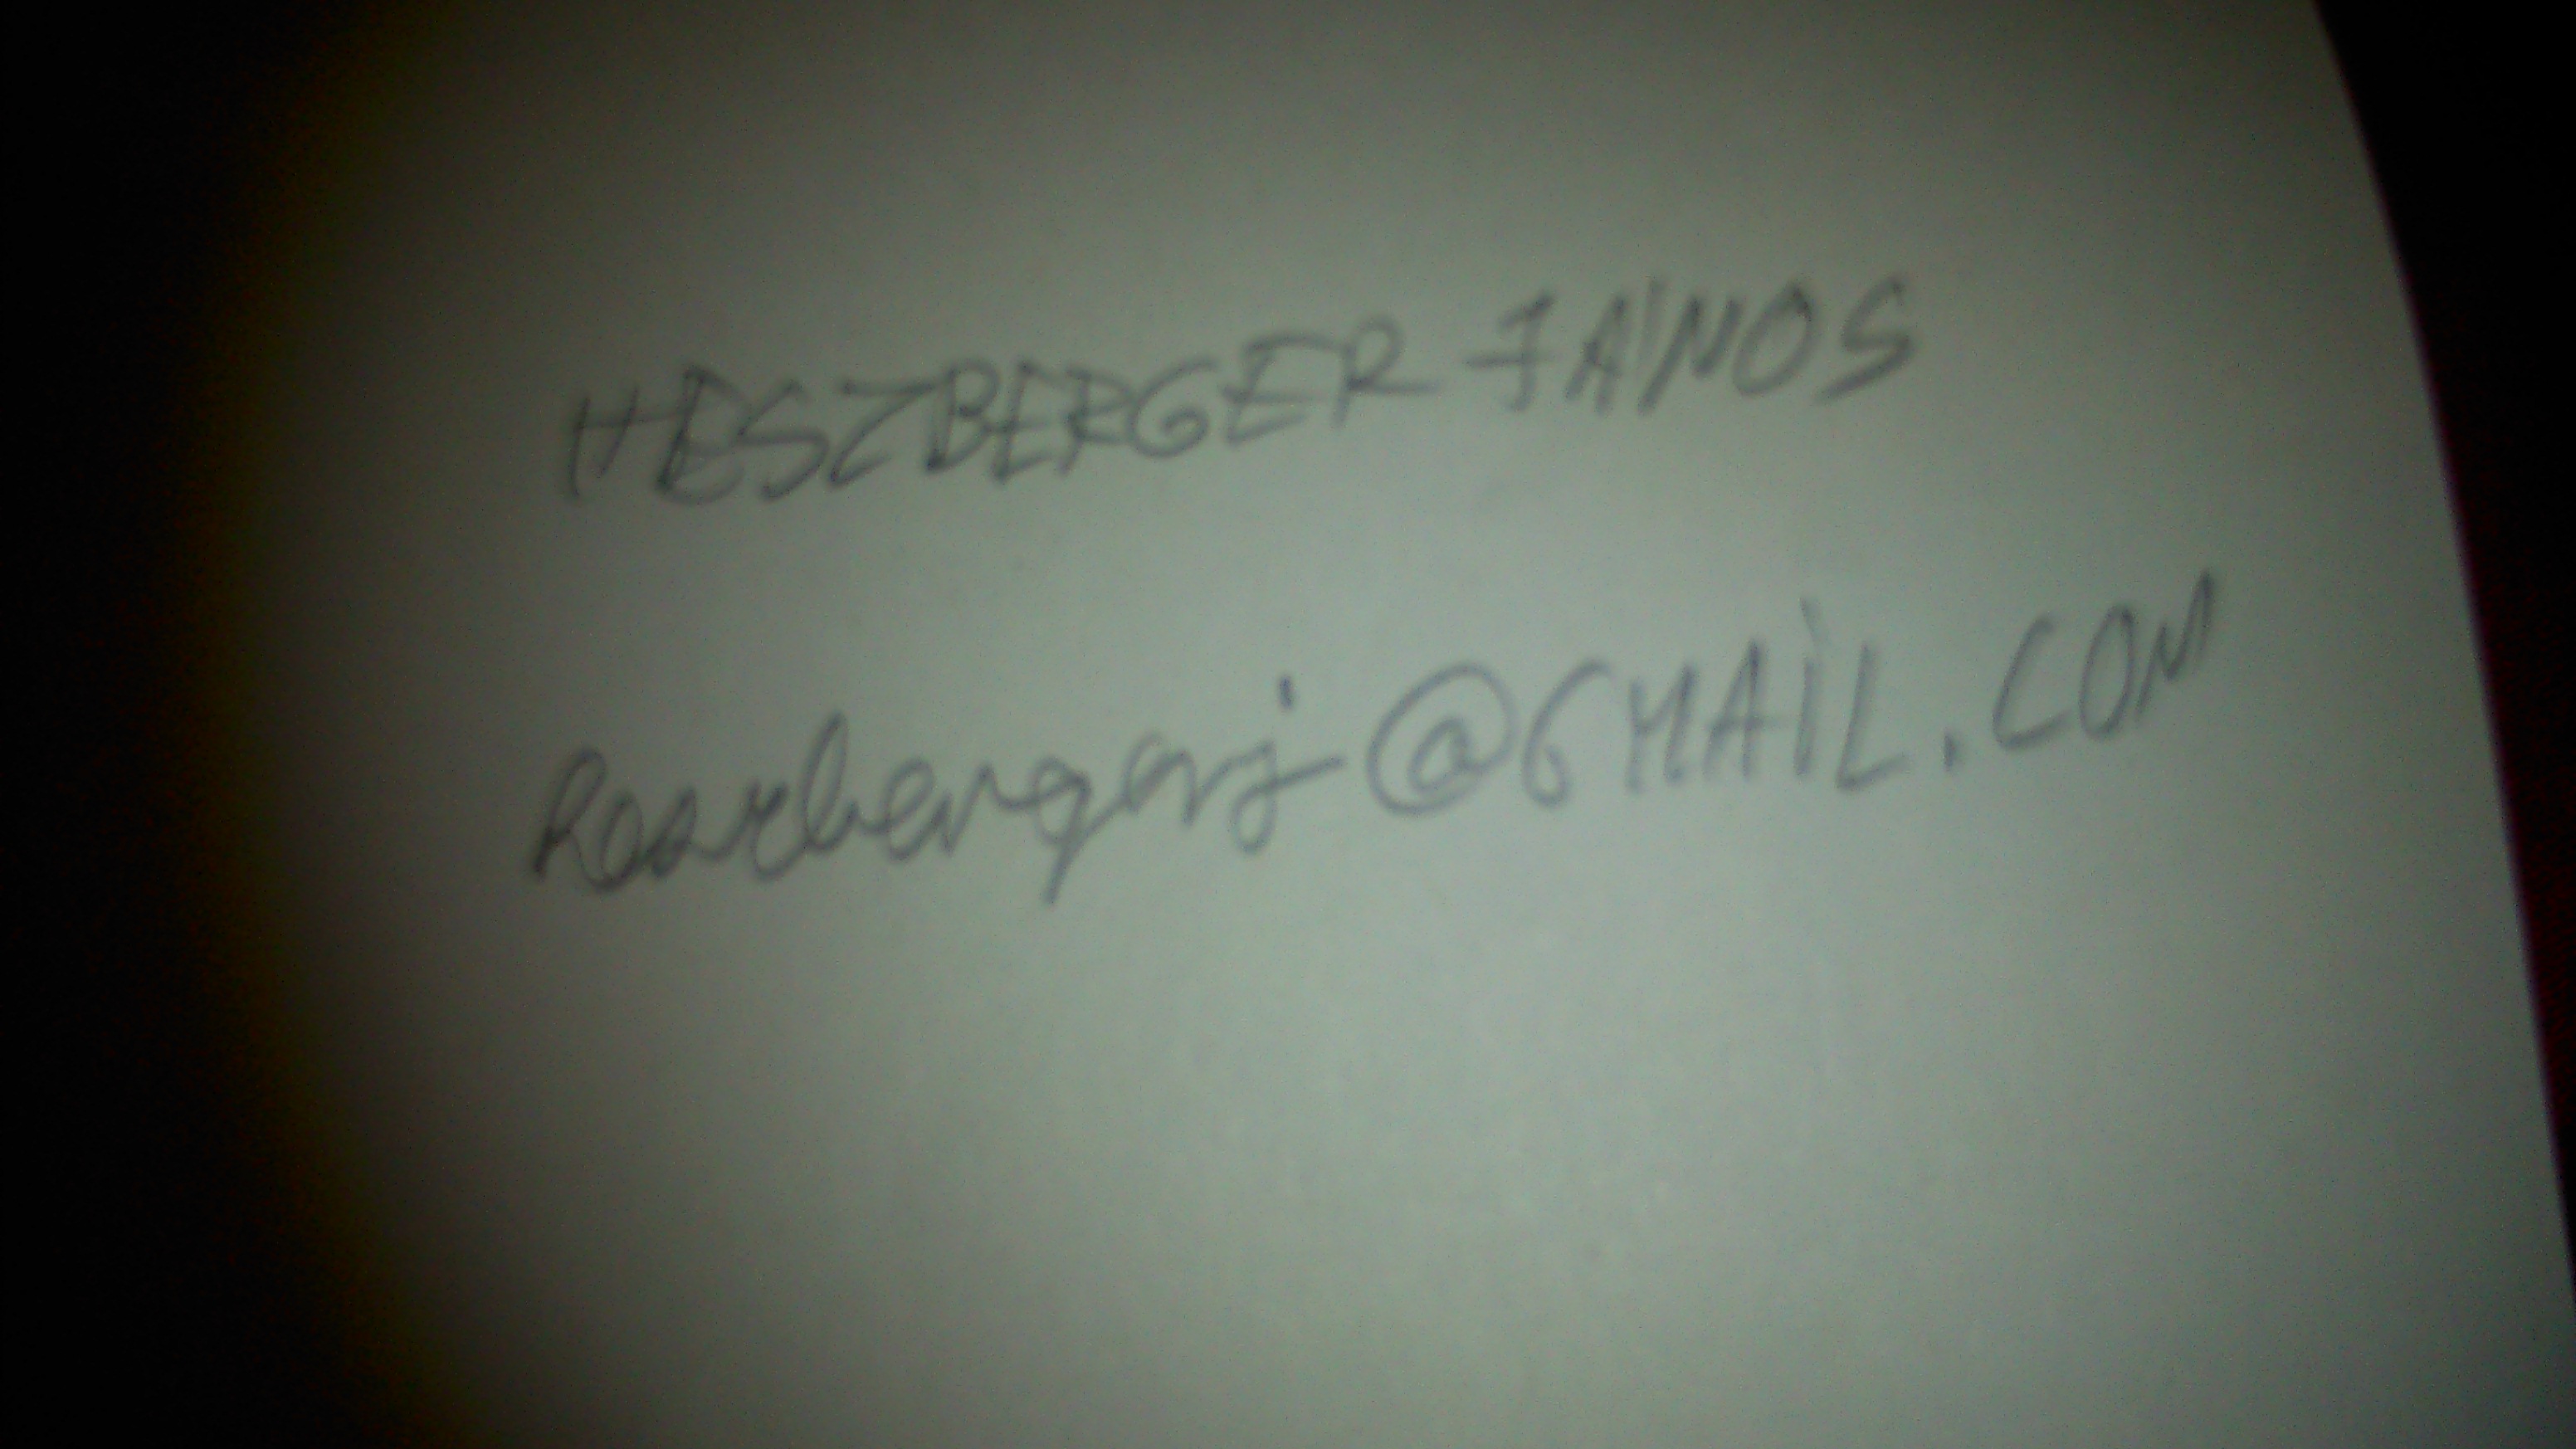 HESZBERGER JÁNOS
heszbergerj@GMAIL.COM